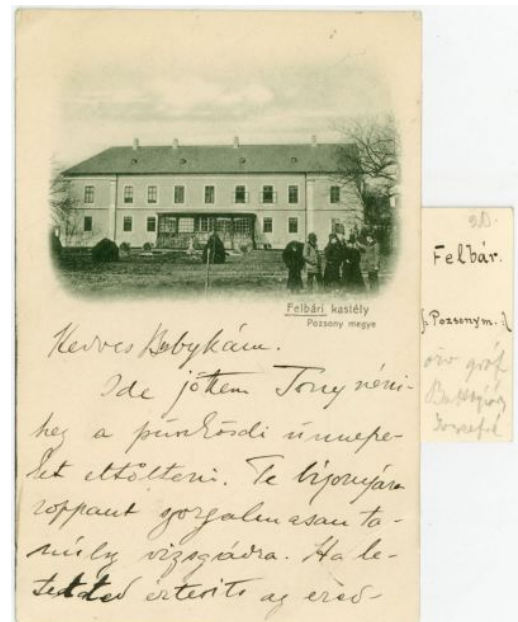 Felbári kastély
Pozsony megye
Kedves Babykám.
Ide jöttem Tony néni-
hez a pünkösdi ünnepe-
ket eltölteni. Te bizonyára
roppant szorgalmasan ta-
nulsz vizsgádra. Ha le-
tetted értesits az ered-
Felbár.
Pozsonym.
özv gróf
Batthyány
Józsefné